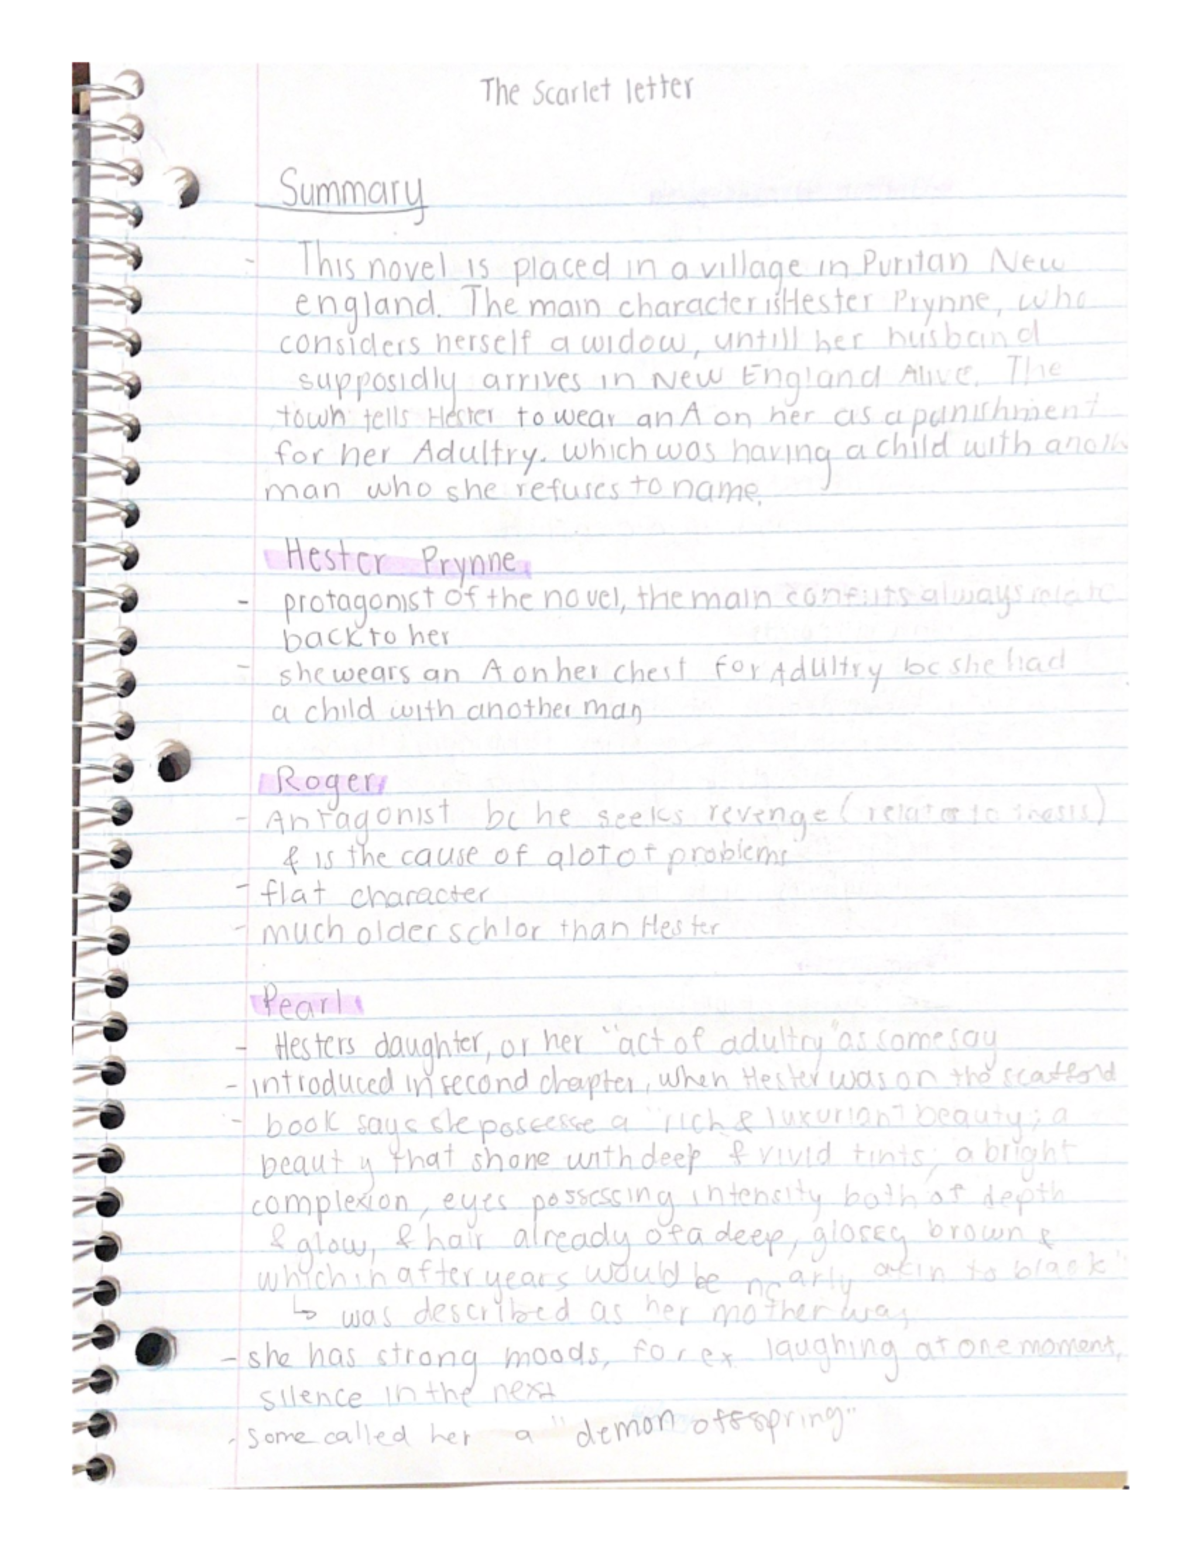 The Scarlet letter
Summary
- This novel is placed in a village in Puritan New
england. The main character is Hester Prynne, who
considers herself a widow, untill her husband
supposidly arrives in New England Alive. The
town tells Hester to wear an A on her as a punishment
for her Adultry. which was having a child with anoth
man who she refuses to name.
Hester Prynne
- protagonist of the novel, the main always relate
back to her
- she wears an A on her chest for Adultry bc she had
a child with another man
Roger
- Antagonist bc he seeks revenge (relate to thesis)
& is the cause of alot of problems
- flat character
- much older schlor than Hester
Pearl
- Hesters daughter, or her "act of adultry" as some say
- introduced in second chapter, when Hester was on the scaffold
- book says she possesse a "rich & luxuriant beauty; a
beauty that shone with deep & vivid tints; a bright
complexion, eyes possessing intensity both of depth
& glow, & hair already of a deep, glossy brown &
which in after years would be nearly akin to black"
↳ was described as her mother was
- she has strong moods, for ex laughing at one moment,
silence in the next
- some called her a "demon offspring"